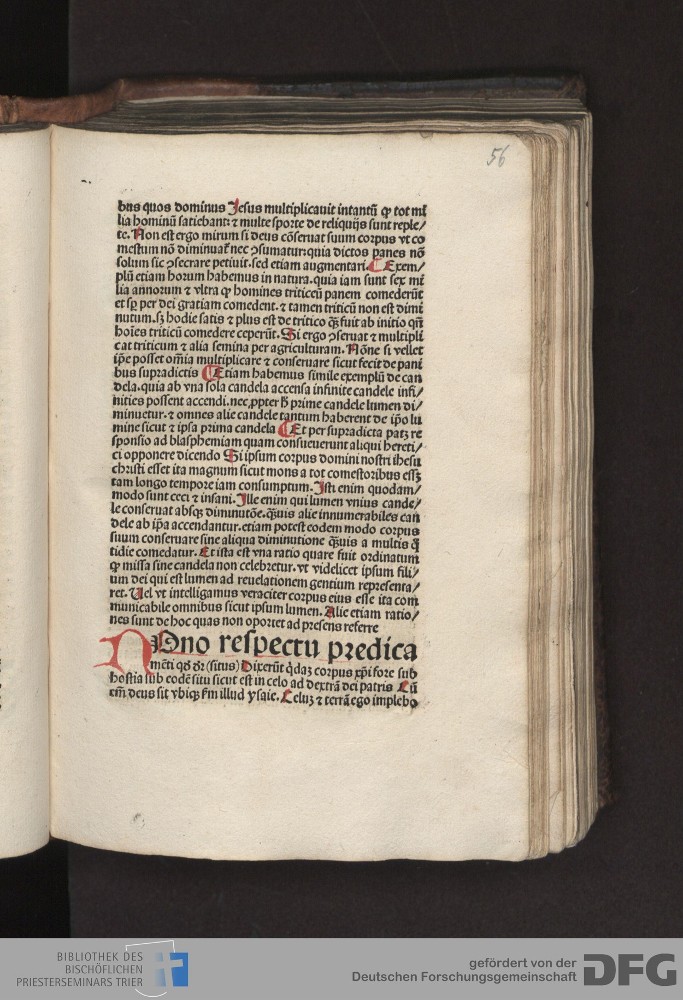 56
bus quos dominus Jesus multiplicauit intantũ ꝙ tot mi
lia hominũ satiebant: ⁊ multe sporte de reliquijs sunt reple/
te. Non est ergo mirum si deus cõseruat suum corpus vt co
mestum nõ diminuat̃ nec ꝯsumatur: quia dictos panes nõ
solum sic ꝯsecrare petiuit. sed etiam augmentari. ¶ Exem/
plũ etiam horum habemus in natura. quia iam sunt sex mi
lia annorum ⁊ vltra ꝙ homines triticeũ panem comederũt
et sꝑ per dei gratiam comedent. ⁊ tamen triticũ non est dimi
nutum. sꝫ hodie satis ⁊ plus est de tritico q̃ꝫ fuit ab initio qñ
hoĩes triticũ comedere ceperũt. Si ergo ꝯseruat ⁊ multipli
cat triticum ⁊ alia semina per agriculturam. Nõne si vellet
ip̃e posset om̃ia multiplicare ⁊ conseruare sicut fecit de pani
bus supradictis ¶ Etiam habemus simile exemplũ de can
dela. quia ab vna sola candela accensa infinite candele infi/
nities possent accendi. nec ꝓpter h̃ prime candele lumen di/
minuetur. ⁊ omnes alie candele tantum haberent de ip̃o lu
mine sicut ⁊ ipsa prima candela ¶ Et per supradicta patꝫ re
sponsio ad blasphemiam quam consueuerunt aliqui hereti/
ci opponere dicendo Si ipsum corpus domini nostri ihesu
christi esset ita magnum sicut mons a tot comestoribus essꝫ
tam longo tempore iam consumptum. Isti enim quodam/
modo sunt ceci ⁊ insani. Ille enim qui lumen vnius cande/
le conseruat absqꝫ diminutõe. q̃ꝫuis alie innumerabiles can
dele ab ip̃a accendantur. etiam potest eodem modo corpus
suum conseruare sine aliqua diminutione q̃ꝫuis a multis q̃
tidie comedatur. Et ista est vna ratio quare fuit ordinatum
ꝙ missa sine candela non celebretur. vt videlicet ipsum fili/
um dei qui est lumen ad reuelationem gentium representa/
ret. Vel vt intelligamus veraciter corpus eius esse ita com
municabile omnibus sicut ipsum lumen. Alie etiam ratio/
nes sunt de hoc quas non oportet ad presens referre
NOno respectu predica
mẽti qđ dr̃ (situs) Dixerũt q̃daꝫ corpus xp̃i fore sub
hostia sub eodẽ situ sicut est in celo ad dextrã dei patris Cũ
tñ deus sit vbiqꝫ ẜm illud ysaie. Celuꝫ ⁊ terrã ego implebo
BIBLIOTHEK DES
BISCHÖFLICHEN
PRIESTERSEMINARS TRIER
gefördert von der
Deutschen Forschungsgemeinschaft
DFG